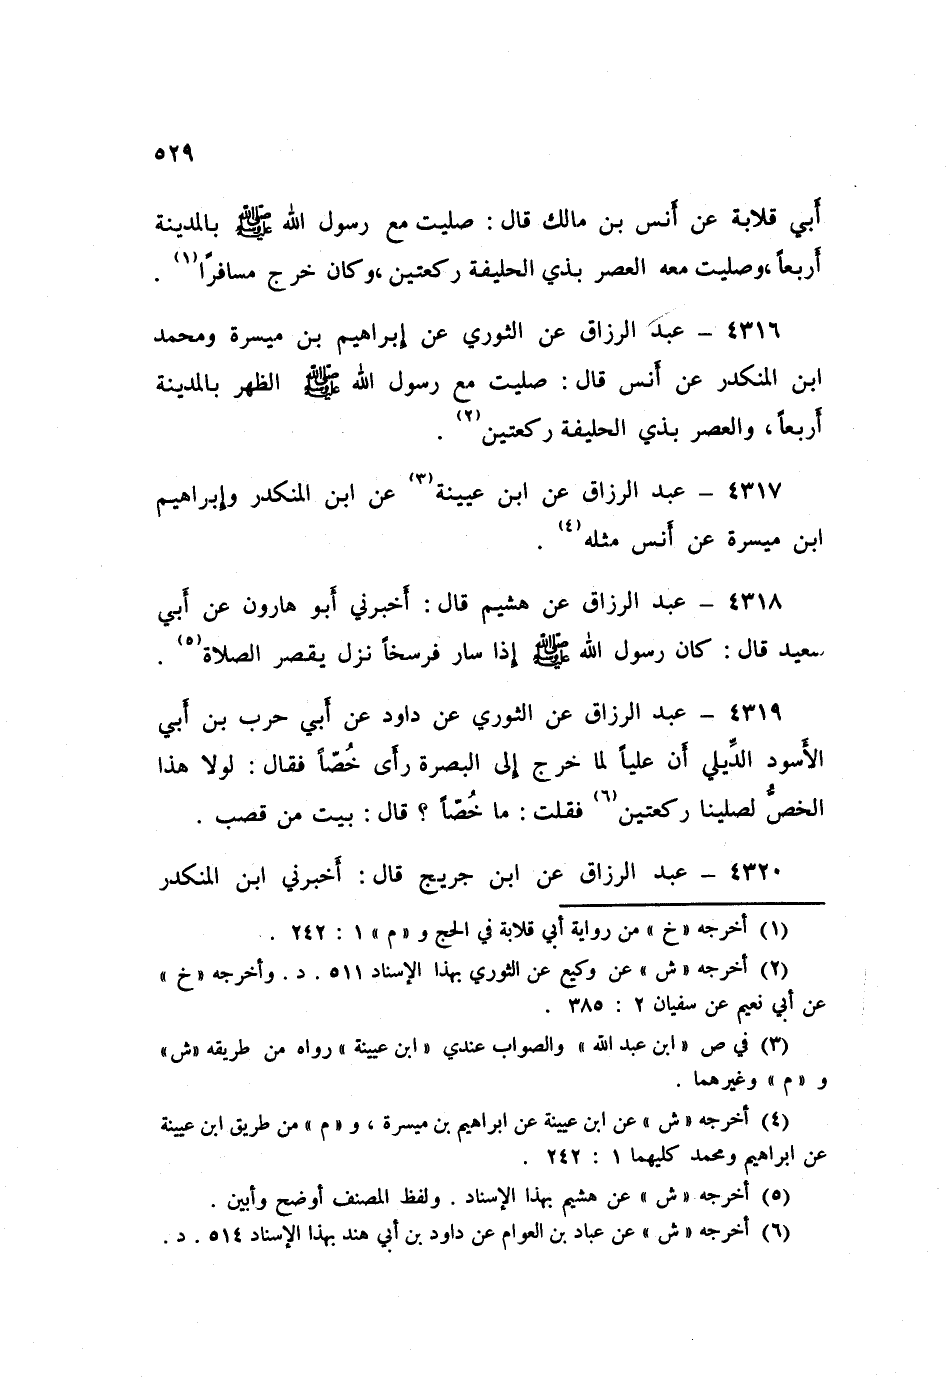 ٥٢٩
أَبي قلابة عن أَنس بن مالك قال : صليت مع رسول الله ﷺ بالمدينة
أَربعاً ،وصليت معه العصر بذي الحليفة ركعتين ،وكان خرج مسافرًا(١) .
٤٣١٦ – عبد الرزاق عن الثوري عن إبراهيم بن ميسرة ومحمد
ابن المنكدر عن أَنس قال : صليت مع رسول الله ﷺ الظهر بالمدينة
أَربعاً ، والعصر بذي الحليفة ركعتين(٢) .
٤٣١٧ – عبد الرزاق عن ابن عيينة(٣) عن ابن المنكدر وإبراهيم
ابن ميسرة عن أَنس مثله(٤) .
٤٣١٨ – عبد الرزاق عن هشيم قال : أَخبرني أَبو هارون عن أَبي
سعيد قال : كان رسول الله ﷺ إذا سار فرسخاً نزل يقصر الصلاة(٥) .
٤٣١٩ – عبد الرزاق عن الثوري عن داود عن أَبي حرب بن أَبي
الأَسود الدِّيلي أَن علياً لما خرج إلى البصرة رأَى خُصّاً فقال : لولا هذا
الخصُّ لصلينا ركعتين(٦) فقلت : ما خُصّاً ؟ قال : بيت من قصب .
٤٣٢٠ – عبد الرزاق عن ابن جريج قال : أَخبرني ابن المنكدر
(١) أخرجه «خ» من رواية أبي قلابة في الحج و «م» ١ : ٢٤٢ .
(٢) أخرجه «ش» عن وكيع عن الثوري بهذا الإسناد ٥١١ . د . وأخرجه «خ»
عن أبي نعيم عن سفيان ٢ : ٣٨٥ .
(٣) في ص «ابن عبد الله» والصواب عندي «ابن عيينة» رواه من طريقه «ش»
و «م» وغيرهما .
(٤) أخرجه «ش» عن ابن عيينة عن ابراهيم بن ميسرة ، و «م» من طريق ابن عيينة
عن ابراهيم ومحمد كليهما ١ : ٢٤٢ .
(٥) أخرجه «ش» عن هشيم بهذا الإسناد . ولفظ المصنف أوضح وأبين .
(٦) أخرجه «ش» عن عباد بن العوام عن داود بن أبي هند بهذا الإسناد ٥١٤ . د .